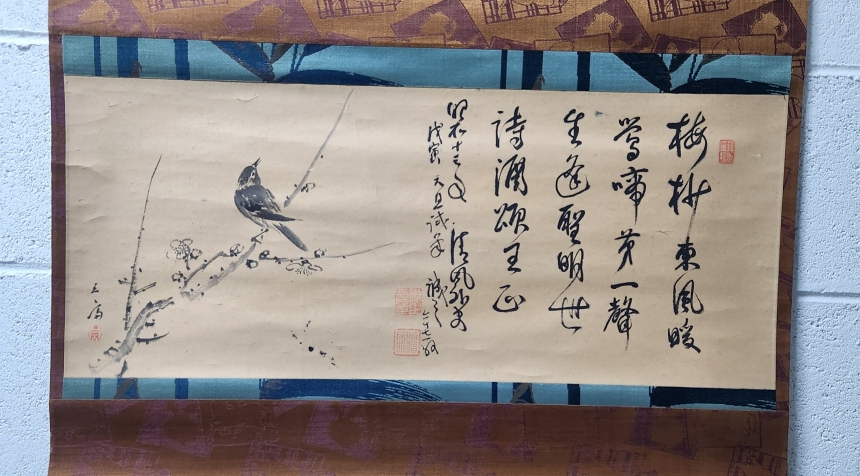 梅柳東風暖
鶯啼第一聲
生逢聖明世
詩酒頌王正
昭和十三年 清風
戊寅元旦試筆